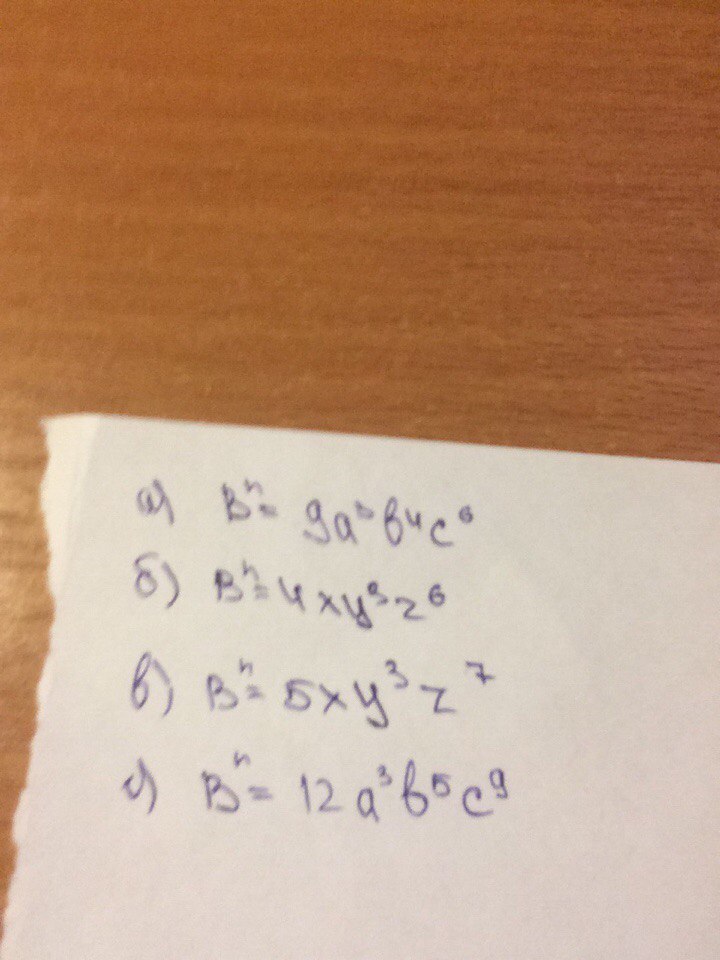 а) Bⁿ= 9a⁵b⁴c⁶
б) Bⁿ=4xy⁹z⁶
в) Bⁿ= 5xy³z⁷
г) Bⁿ= 12a³b⁵c⁹